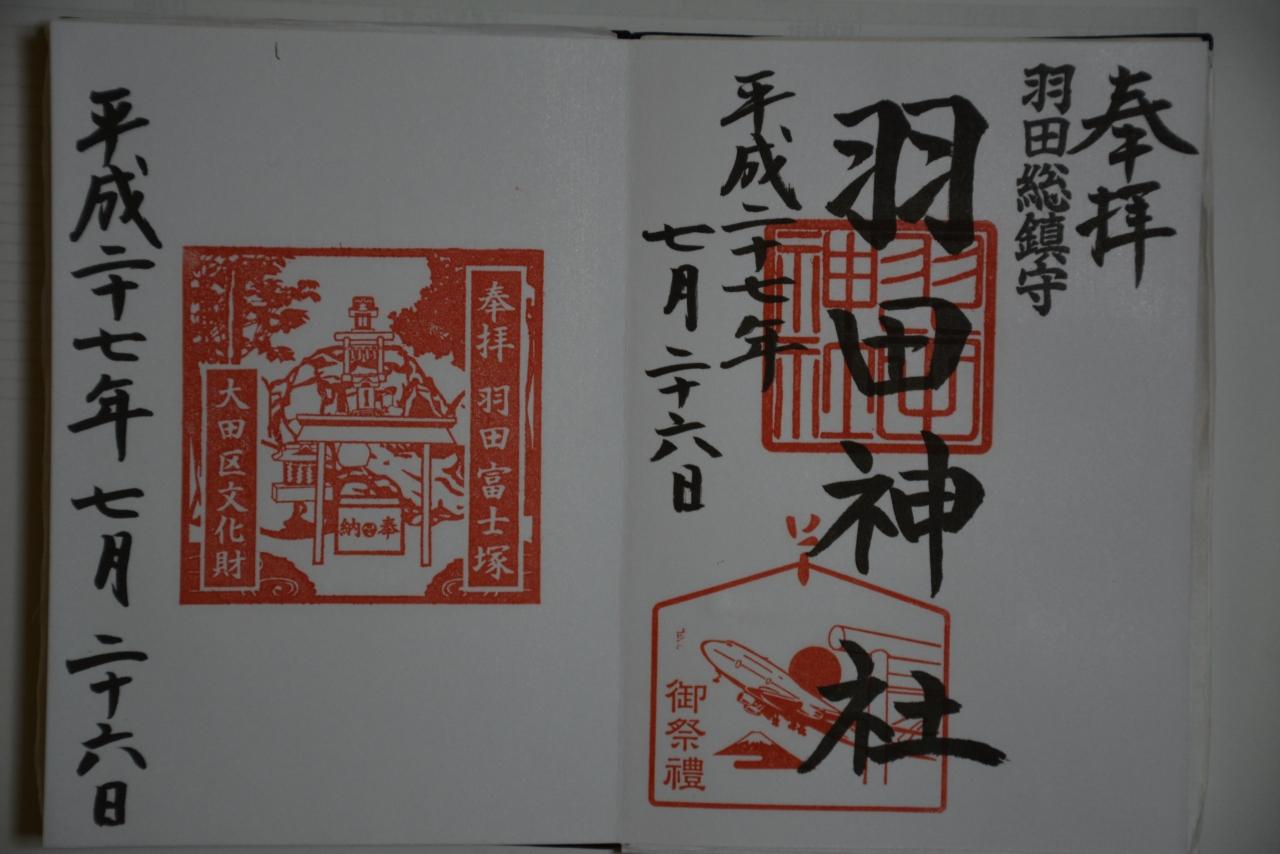 奉拝
羽田総鎮守
羽田神社
羽田
神社
平成二十七年
七月二十六日
御祭禮
奉拝 羽田富士塚
奉納
大田区文化財
平成二十七年 七月 二十六日